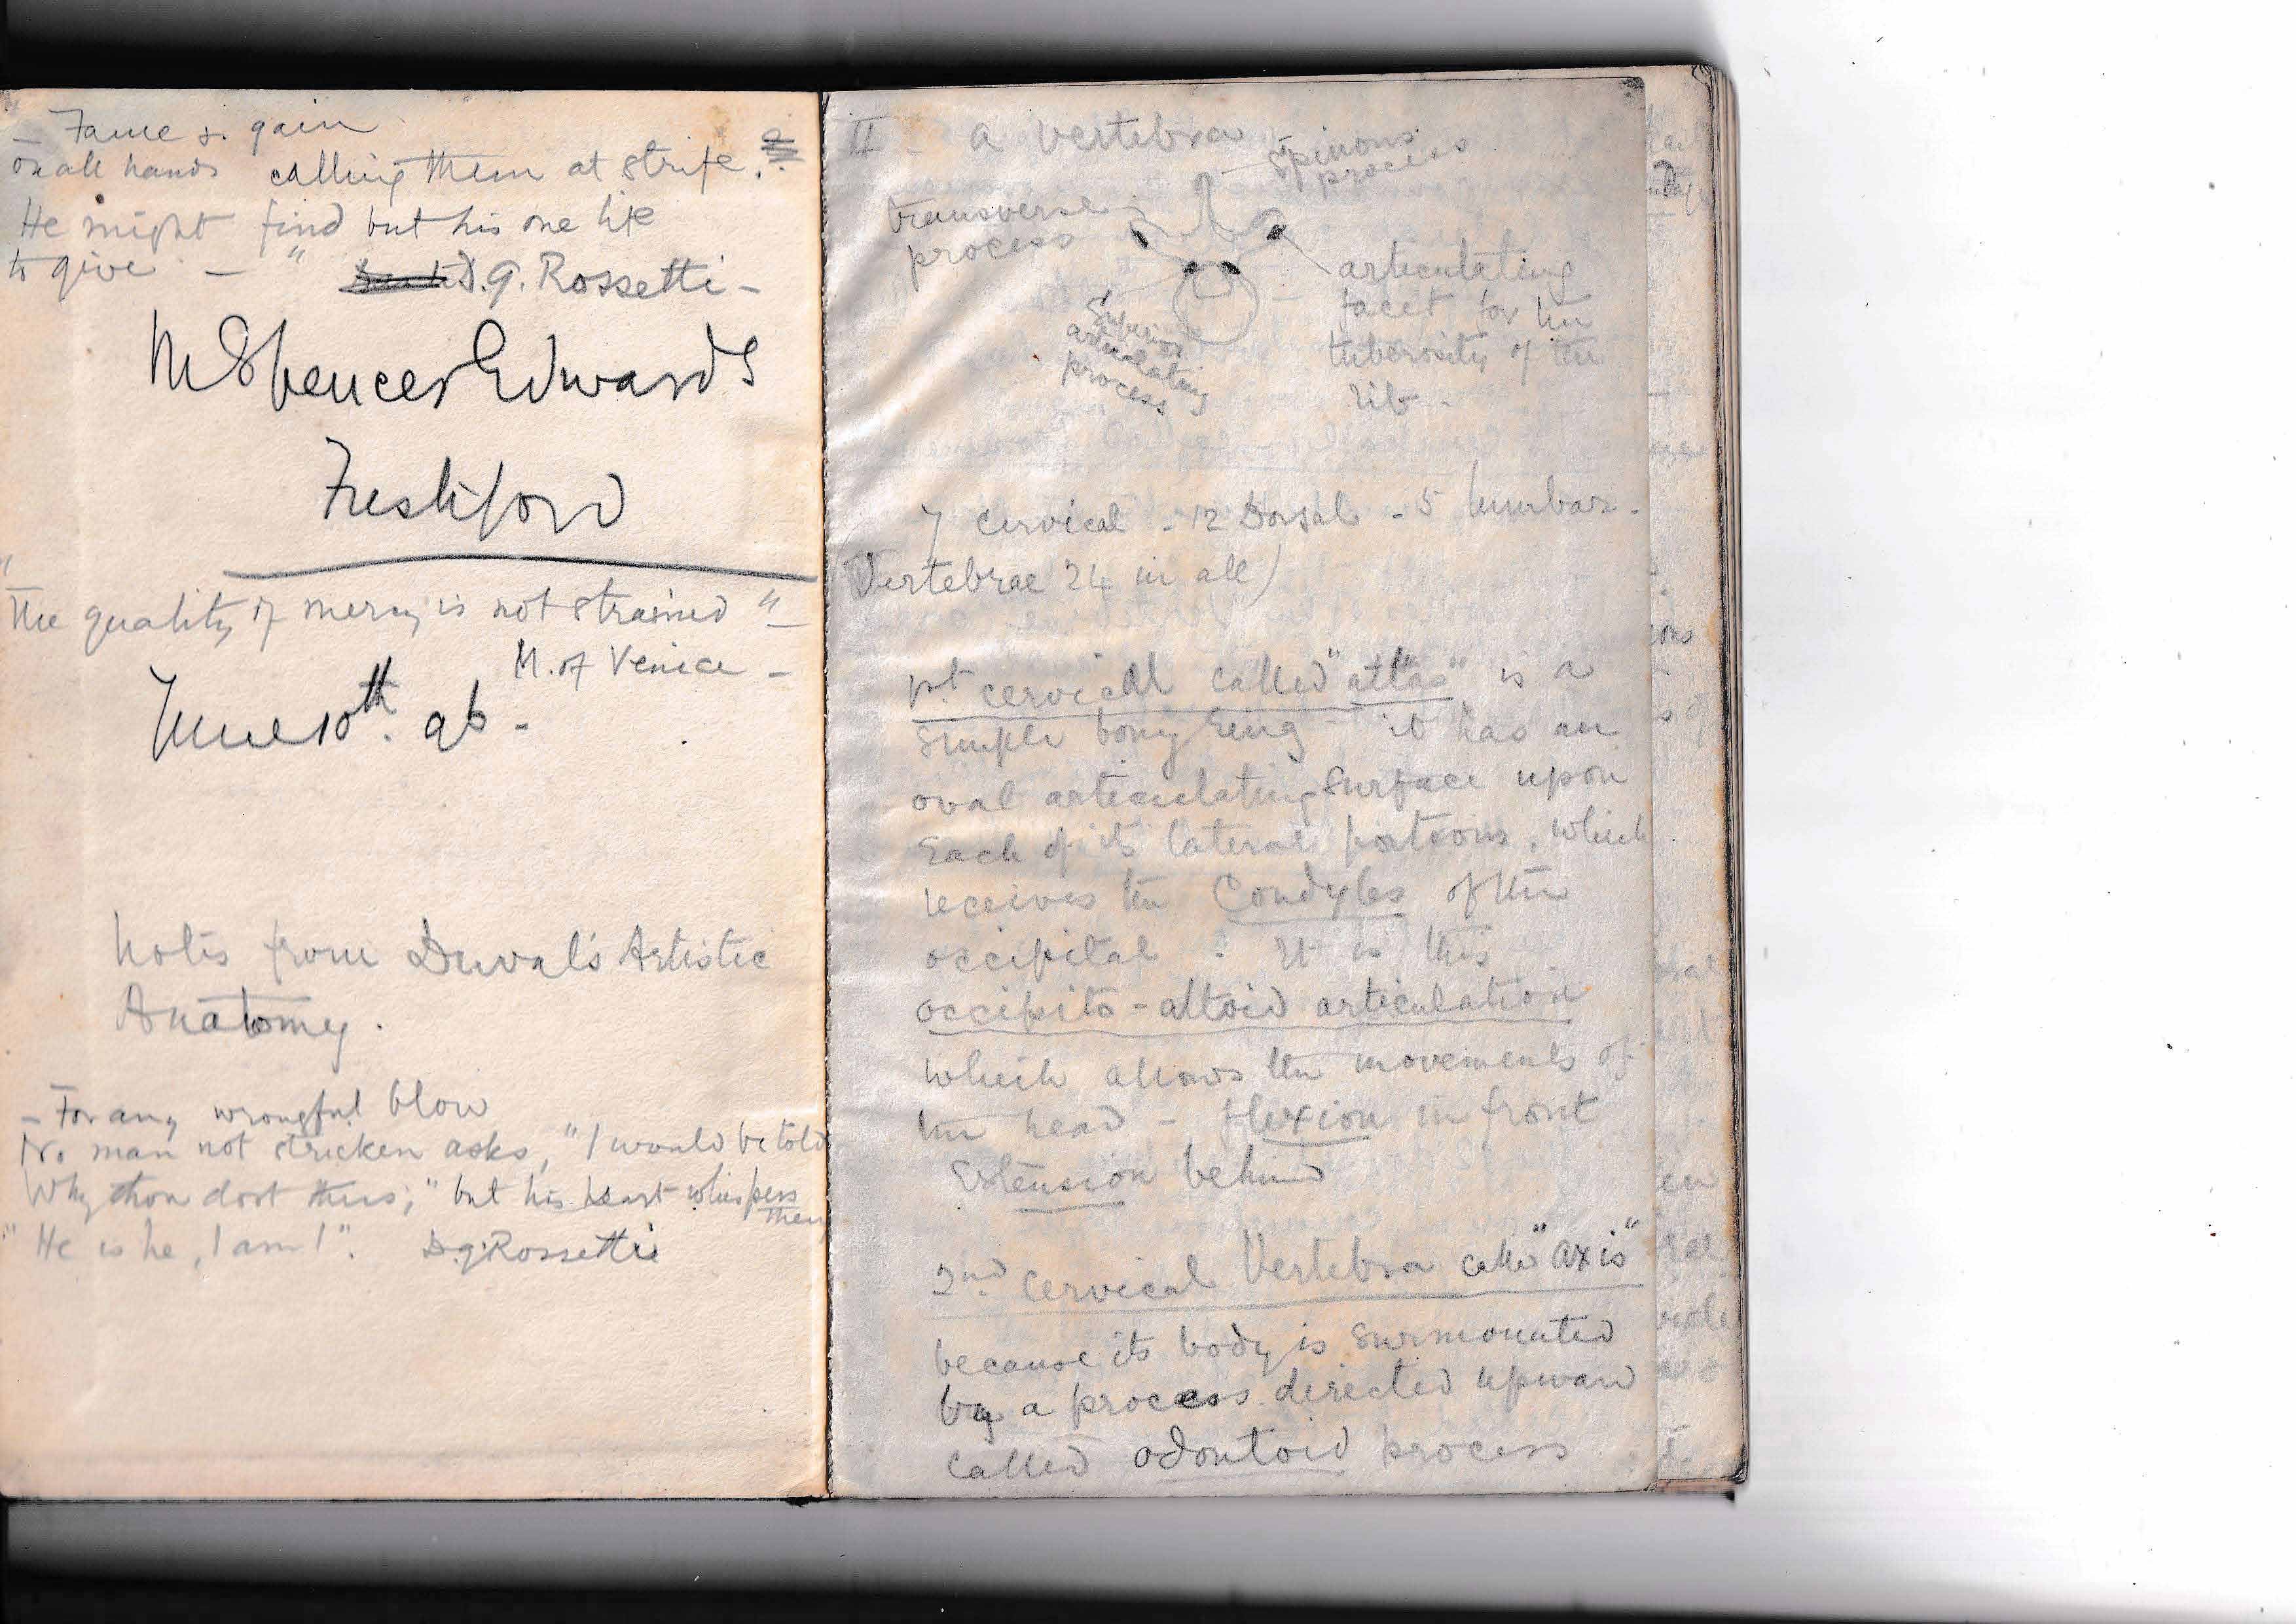 — Fame & gain
on all hands calling them at strife.
He might find but his one life
to give — " D. G. Rossetti —
M Spencer Edwards
Freshford
"The quality of mercy is not strained"
M. of Venice —
June 10th. 96 -
Notes from Duval's Artistic
Anatomy.
— For any wrongful blow
No man not stricken asks, "I would be told
Why thou dost thus;" but his heart whispers
then
"He is he, I am I". D. G. Rossetti
II - a vertebra
Spinous
process
transverse
process
articulating
facet for the
tuberosity of the
rib -
Superior
articulating
process
7 cervical - 12 Dorsal - 5 lumbar -
Vertebrae 24 in all)
1st cervical called "atlas" is a
simple bony ring - it has an
oval articulating surface upon
Each of its lateral portions, which
receives the Condyles of the
occipital : It is this
occipito-altoid articulation
which allows the movements of
the head - flexion in front
Extension behind
2nd cervical Vertebra calle "axis"
because its body is surmounted
by a process directed upward
called odontoid process